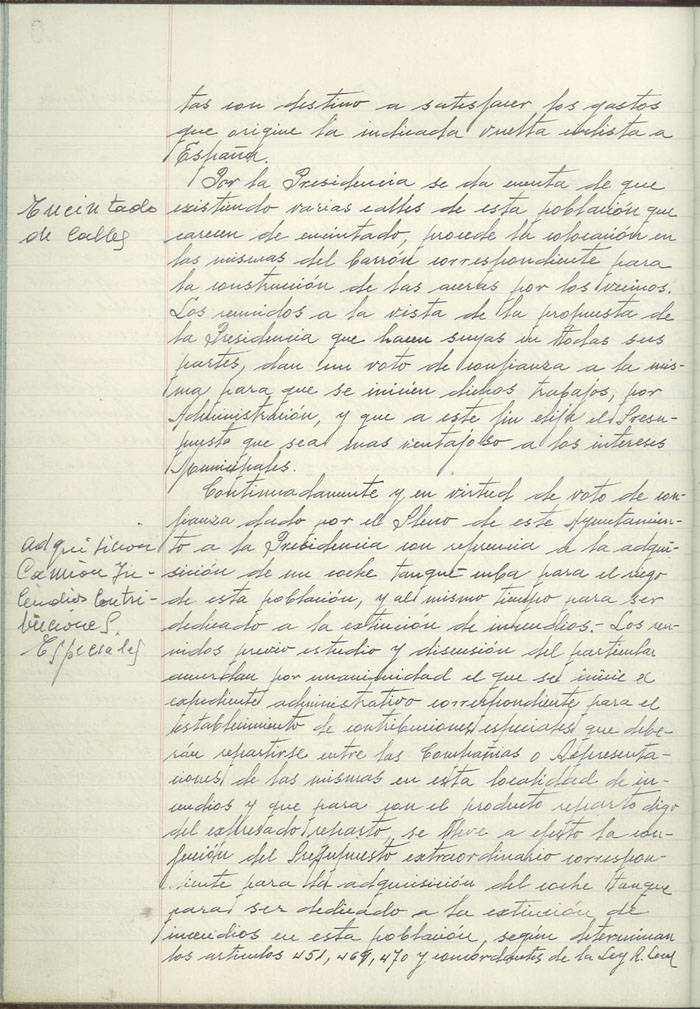 tas con destino a satisfacer los gastos
que origine la indicada vuelta ciclista a
España.
Encintado
de Calles
Por la Presidencia se da cuenta de que
existiendo varias calles de esta población que
carecen de encintado, procede la colocación en
las mismas del Carrón correspondiente para
la construcción de las aceras por los vecinos.
Los reunidos a la vista de la propuesta de
la Presidencia que hacen suyas en todas sus
partes, dan un voto de confianza a la mis-
ma para que se inicien dichos trabajos, por
Administración, y que a este fin elija el Presu-
puesto que sea mas ventajoso a los intereses
Municipales.
Adquisicion
Camión In-
cendios Contri-
buciones
Especiales
Continuadamente y en virtud de voto de con-
fianza dado por el Pleno de este Ayuntamien-
to a la Presidencia con refrencia a la adqui-
sición de un coche tanque cuba para el riego
de esta población, y al mismo tiempo para ser
dedicado a la extinción de incendios.- Los reu-
nidos previo estudio y discusión del particular
acuerdan por unanimidad el que se inicie el
expediente administrativo correspondiente para el
establecimiento de contribuciones especiales que debe-
rán repartirse entre las Compañias o Representa-
ciones de las mismas en esta localidad de in-
cendios y que para con el producto reparto digo
del expresado reparto, se lleve a efecto la con-
fección del Presupuesto extraordinario correspon-
diente para la adquisición del coche tanque
para ser dedicado a la extinción de
incendios en esta población, según determinan
los articulos 451, 469, 470 y concordantes de la Ley R. Local